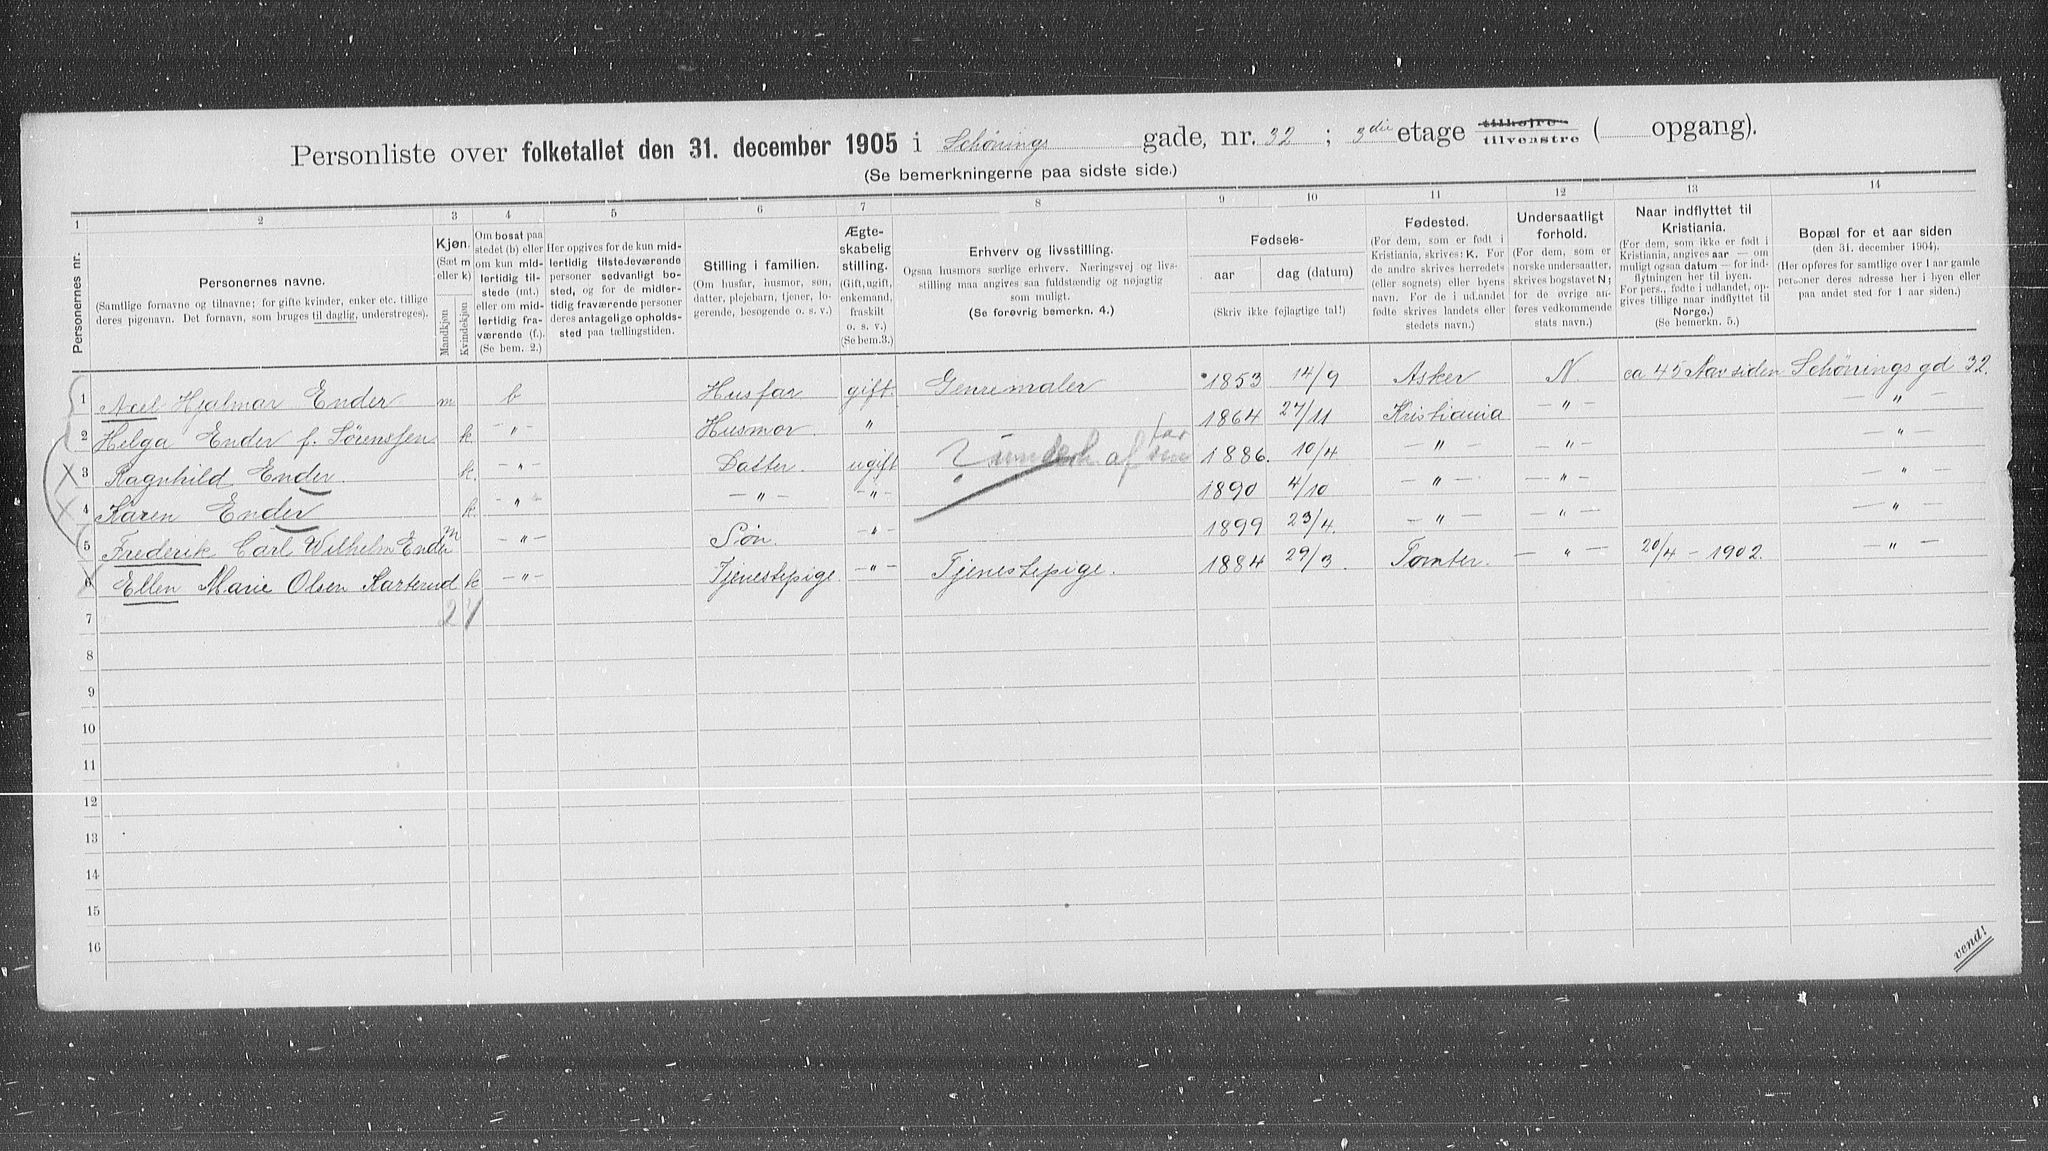 Personliste over folketallet den 31. december 1905 i Schønings gade, nr. 32 ; 3die etage tilhøjre tilvenstre ( opgang).
(Se bemerkningerne paa sidste side.)
1 2 3 4 5 6 7 8 9 10 11 12 13 14
Personernes nr.
Personernes navne.
(Samtlige fornavne og tilnavne; for gifte kvinder, enker etc. tillige
deres pigenavn. Det fornavn, som bruges til daglig, understreges).
Kjøn.
(Sæt m
eller k)
Mandkjøn
Kvindekjøn
Om bosat paa
stedet (b) eller
om kun mid-
lertidig til-
stede (mt.)
eller om mid-
lertidig fra-
værende (f.).
(Se bem. 2.)
Her opgives for de kun mid-
lertidig tilstedeværende
personer sedvanligt bo-
sted, og for de midler-
tidig fraværende personer
deres antagelige opholds-
sted paa tællingstiden.
Stilling i familien.
(Om husfar, husmor, søn,
datter, plejebarn, tjener, lo-
gerende, besøgende o. s. v.)
Ægte-
skabelig
stilling.
(Gift, ugift,
enkemand,
fraskilt
o. s. v.)
(Se bem.3.)
Erhverv og livsstilling.
Ogsaa husmors særlige erhverv. Næringsvej og livs-
stilling maa angives saa fuldstændig og nøjagtig
som muligt.
(Se forøvrig bemerkn. 4.)
Fødsels-
aar dag (datum)
(Skriv ikke fejlagtige tal!)
Fødested.
(For dem, som er født i
Kristiania, skrives: K. For
de andre skrives herredets
(eller sognets) eller byens
navn. For de i udlandet
fødte skrives landets eller
stedets navn.)
Undersaatligt
forhold.
(For dem, som er
norske undersaatter,
skrives bogstavet N;
for de øvrige an-
føres vedkommende
stats navn.)
Naar indflyttet til
Kristiania.
(For dem, som ikke er født i
Kristiania, angives aar — om
muligt ogsaa datum — for ind-
flytningen her til byen.
For pers., fødte i udlandet, op-
gives tillige naar indflyttet til
Norge.)
(Se bemerkn. 5.)
Bopæl for et aar siden
(den 31. december 1904).
(Her opføres for samtlige over 1 aar gamle
personer deres adresse her i byen eller
paa andet sted for 1 aar siden.)
1 Axel Hjalmar Ender m b Husfar gift. Genremaler 1853 14/9 Asker N. ca 45 Aar siden Schønings gd 32.
2 Helga Ender f. Sørenssen k —"— Husmor " 1864 27/11 Kristiania —"— —"—
3 Ragnhild Ender. k. —"— Datter. ugift underh. af far 1886. 10/4 —"— —"— —"—
4 Karen Ender k —"— —"— —"— 1890 4/10 —"— —"— —"—
5 Frederik Carl Wilhelm Ender m —"— Søn —"— 1899 23/4. —"— —"— —"—
6 Ellen Marie Olsen Karterud k —"— Tjenestepige. —"— Tjenestepige. 1884 29/3. Tomter. —"— 20/4 - 1902. —"—
7
8
9
10
11
12
13
14
15
16
vend!